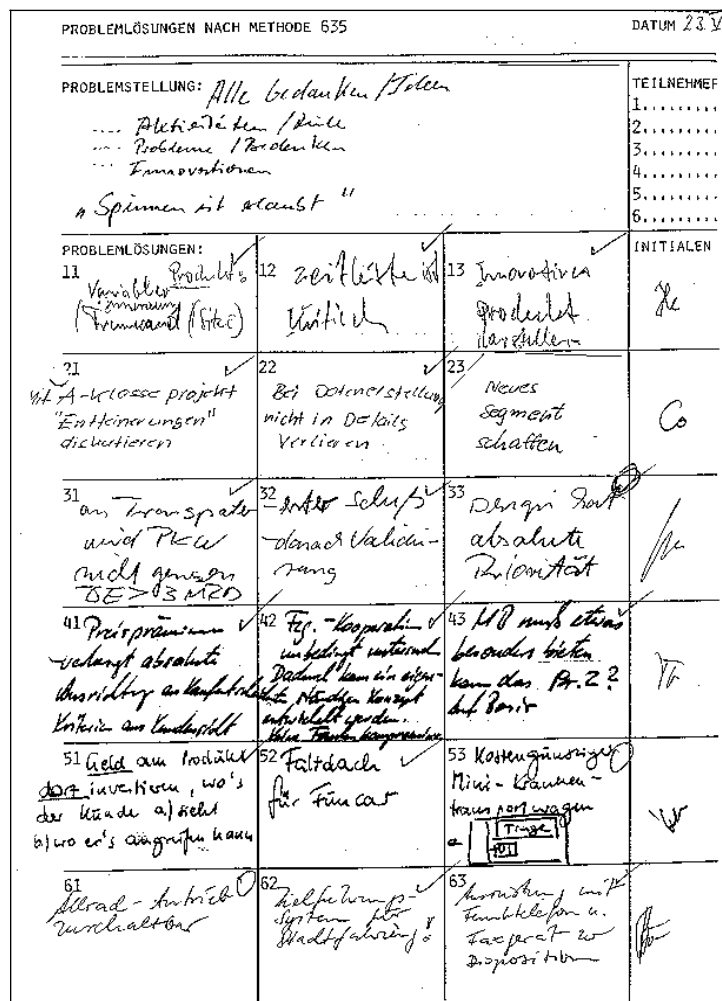 PROBLEMLÖSUNGEN NACH METHODE 635
DATUM 23.
PROBLEMSTELLUNG: Alle Gedanken / Ideen
.... Aktivitäten / Ziele
.... Probleme / Bedenken
.... Innovationen
"Spinnen ist erlaubt"
TEILNEHMER
1.........
2.........
3.........
4.........
5.........
6.........
PROBLEMLÖSUNGEN:
INITIALEN
11
Produkts
Variabler
Trennwand
12 Zeitleiste ist
kritisch
13 Innovatives
Produkt
darstellen
He
21
mit A-Klasse projekt
"Entfeinerungen"
diskutieren
22
Bei Datenerstellung
nicht in Details
verlieren
23
Neues
Segment
schaffen
Co
31
an Transporter
und PKW
nicht
32
erster Schuß
- danach Validie-
rung
33
Design hat
absolute
Priorität
41 Preisprämium
verlangt absolute
Ausrichtung an
Kriterien aus Kundensicht
42 Fzg.-Kooperation
unbedingt
Dadurch kann ein eigen-
ständiges Konzept
entwickelt werden.
Keine
43 MB muß etwas
besonders bieten
kann das Br. 2?
auf Basis
51 Geld am Produkt
dort investieren, wo's
der Kunde a) sieht
b) wo er's angreifen kann
52 Faltdach
für Funcar
53 Kostengünstiger
Mini-Kranken-
transportwagen
Trage
61
Allrad-Antrieb
zuschaltbar
62
Zielführungs-
system für
63
Ausrüstung mit
Funktelefon u.
Faxgerät zur
Disposition